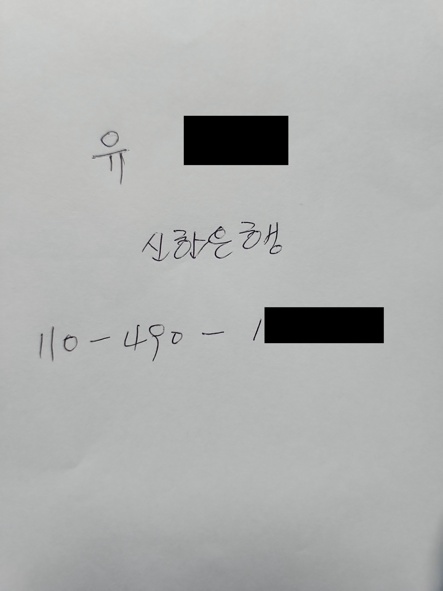 유
신한은행
110-490-1